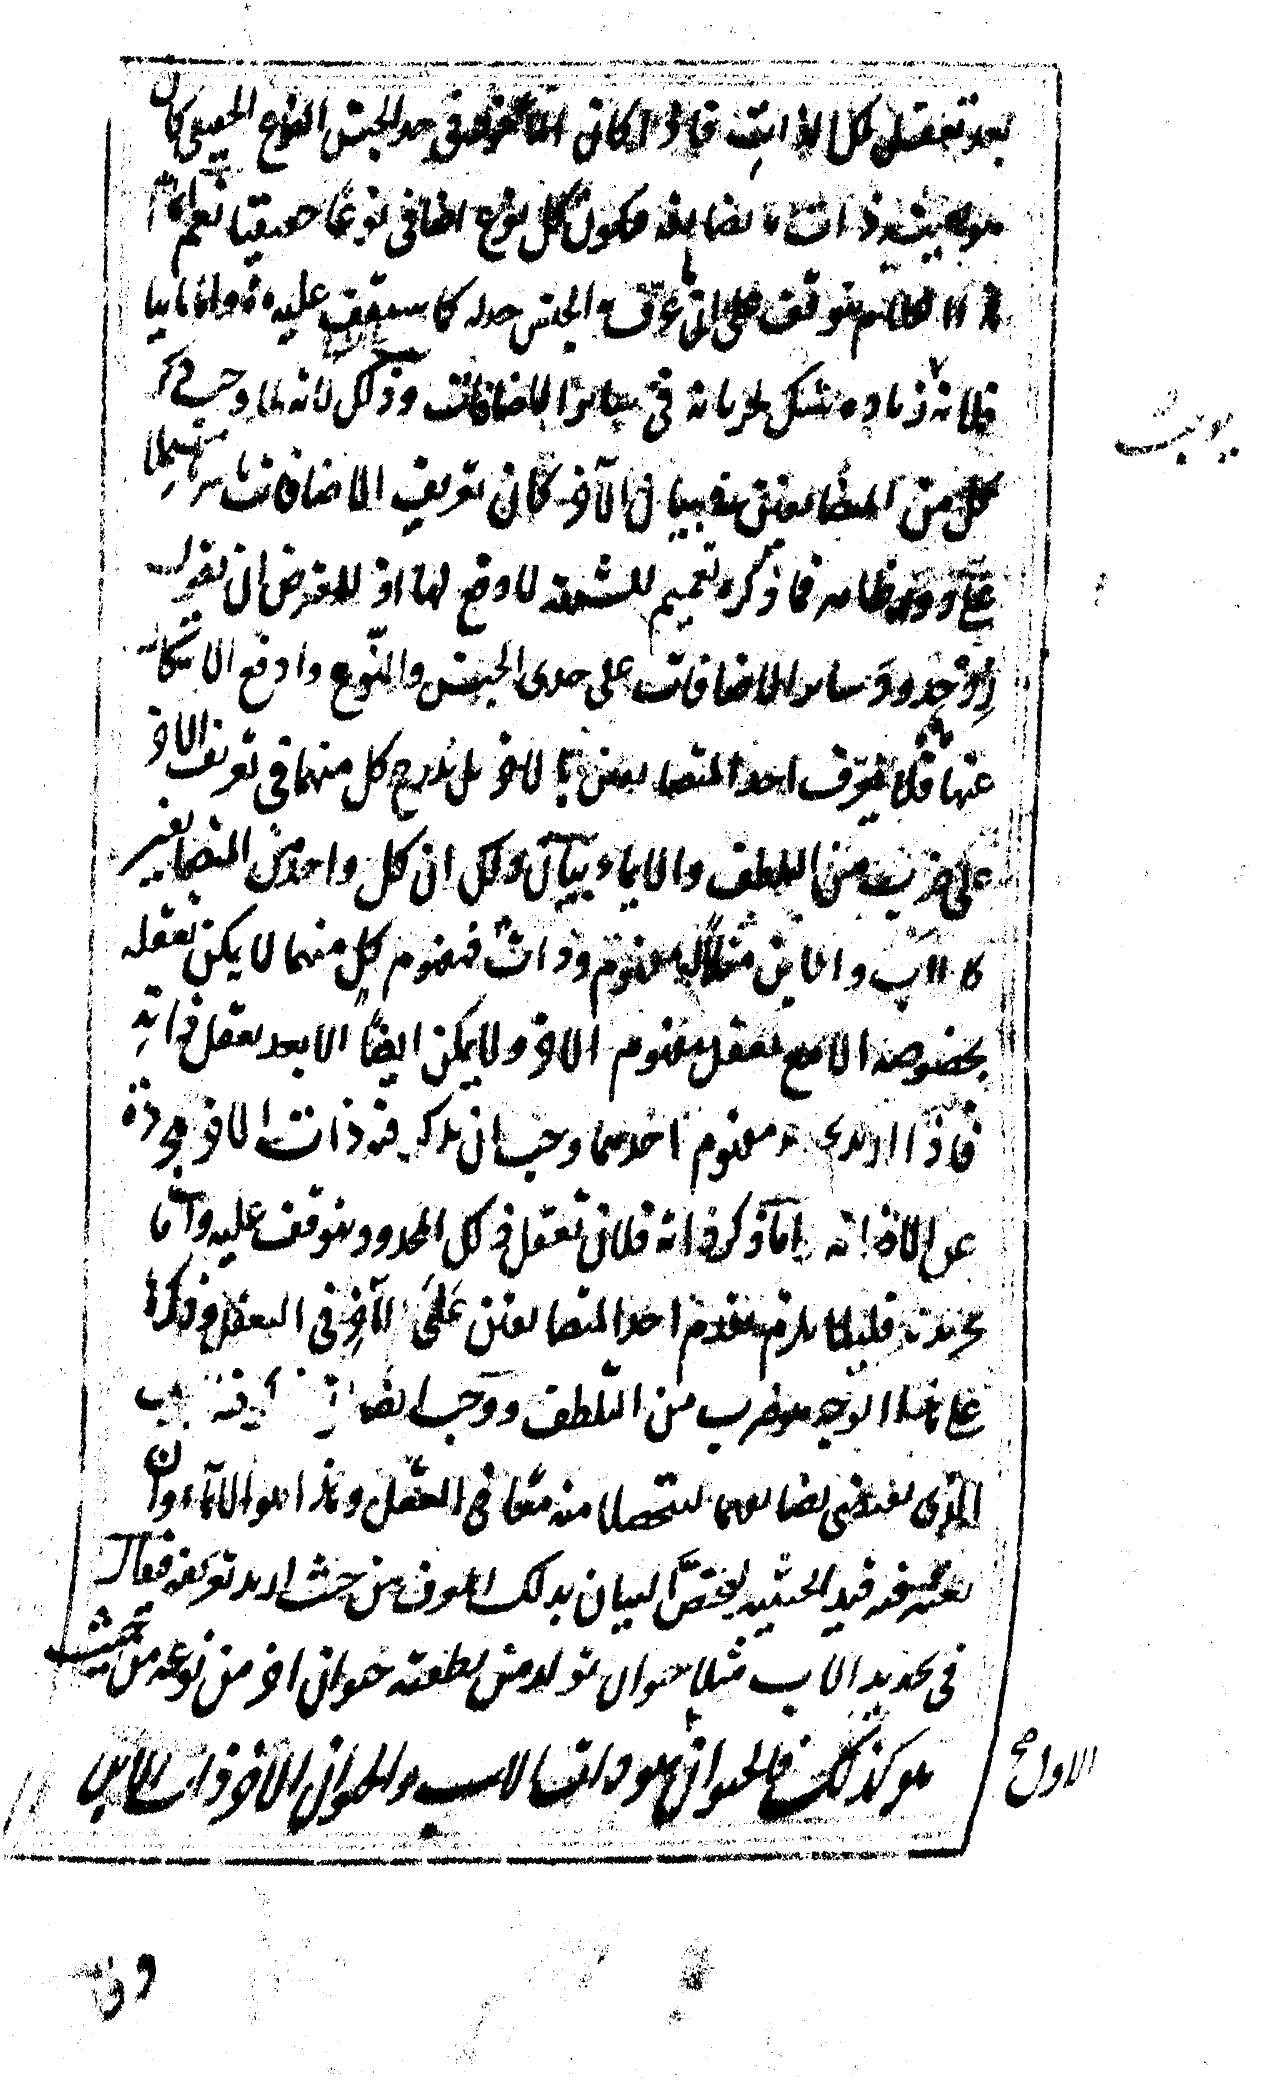 بعد تعقل كل الذات فاذا كان الماخوذ فى حد الجنس النوع الحقيقى كان
هو بحيث ذات ما يضايفه فيكون كل نوع اضافى نوعا حقيقيا نعم
يتوقف على الجنس حده كما يتوقف عليه واما ثانيا
فلانه زياده شك لجريانه فى سائر الاضافات وذلك لانه لما وجب ذكر
كل من المتضايفين فى بيان الآخر كان تعريف الاضافات باسرها
دوريا ظاهرا فما ذكره تتميم للشبهة لا دفع لها اذ للمعترض ان يقول
حدود سائر الاضافات على حدى الجنس والنوع وادفع الاشكال
عنها فلا يعرف احد المتضايفين بالآخر بل يدرج كل منهما فى تعريف الآخر
على ضرب من التلطف والايماء وبيان ذلك ان كل واحد من المتضايفين
كالاب والابن مثلا له مفهوم وذات فمفهوم كل منهما لا يمكن تعقله
بخصوصه الا مع تعقل مفهوم الآخر ولا يمكن ايضا الا بعد تعقل ذاته
فاذا اريد تحديد مفهوم احدهما وجب ان يذكر فيه ذات الآخر مجردة
عن الاضافة اما ذكر ذاته فلان تعقل ذلك المحدود يتوقف عليه واما
تجريده فلئلا يلزم تقدم احد المتضايفين على الآخر فى التعقل وذكرها
على هذا الوجه هو ضرب من التلطف ووجب ايضا ان يذكر فيه السبب
الذى يقتضى تضايفهما ليتحصلا منه معا فى العقل وهذا هو الايماء وان
يعتبر فيه قيد الحيثية ليختص البيان بذلك المعرف من حيث اريد تعريفه فيقال
فى تحديد الاب مثلا حيوان تولد من نطفته حيوان آخر من نوعه من حيث
هو كذلك فالحيوان هو ذات الاب والحيوان الآخر ذات الابن
الاول صح